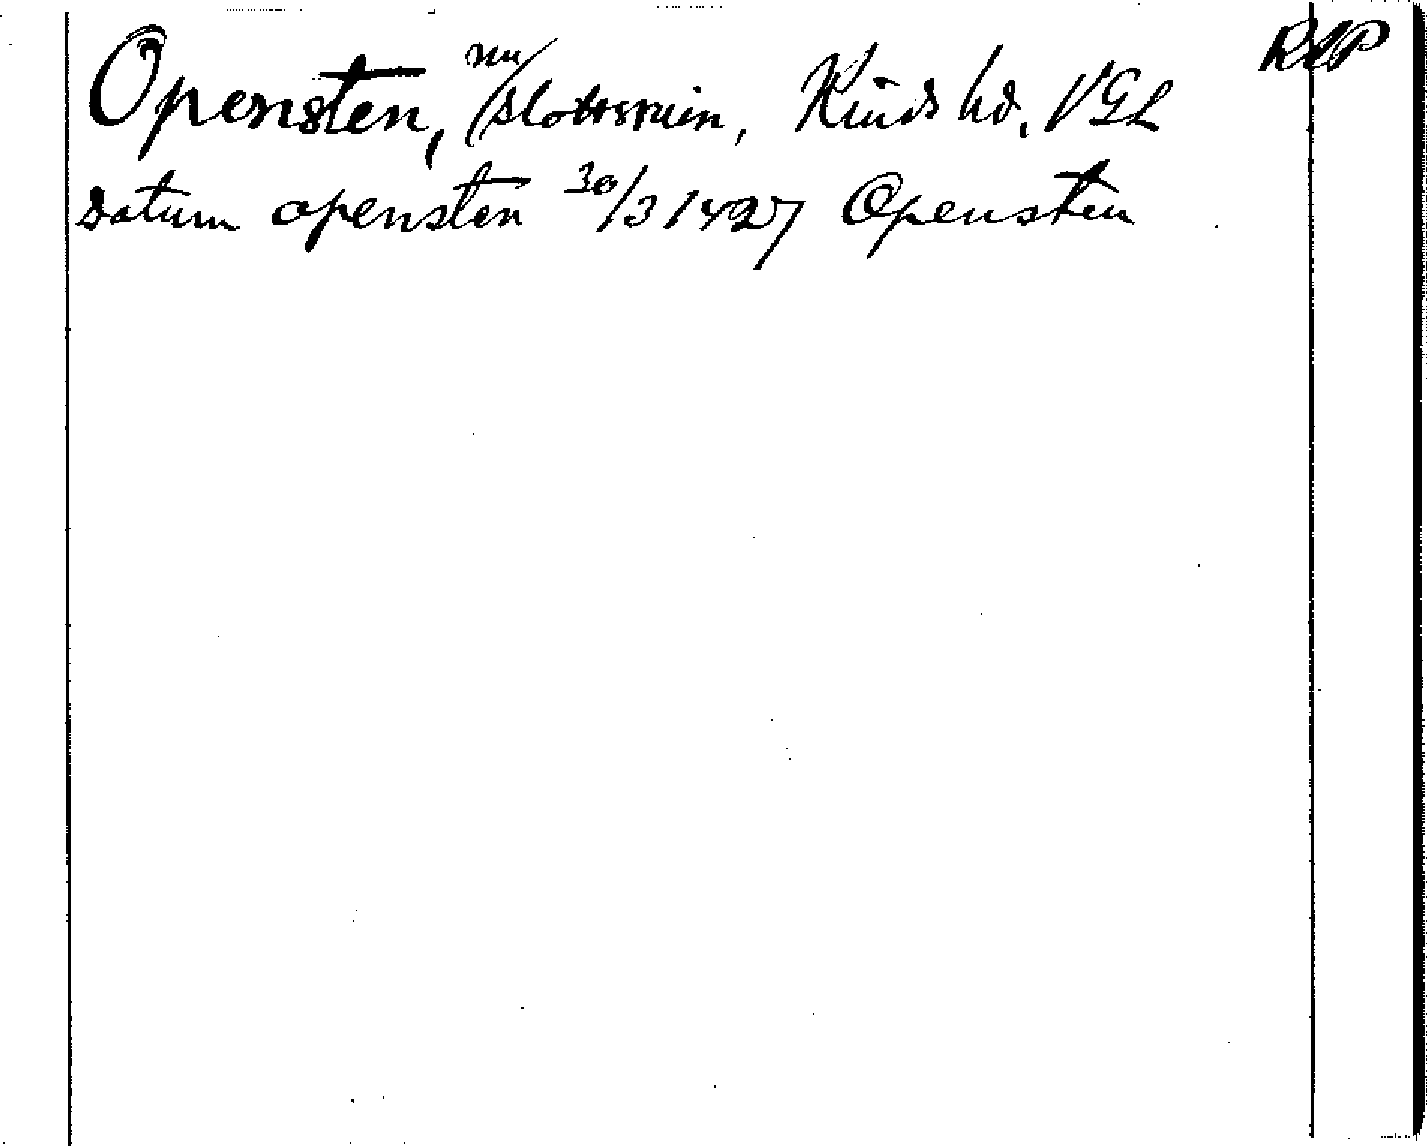 Opensten, nu/slottsruin, Kinds hd. VGL RAP
datum opensten 30/3 1427 Opensten